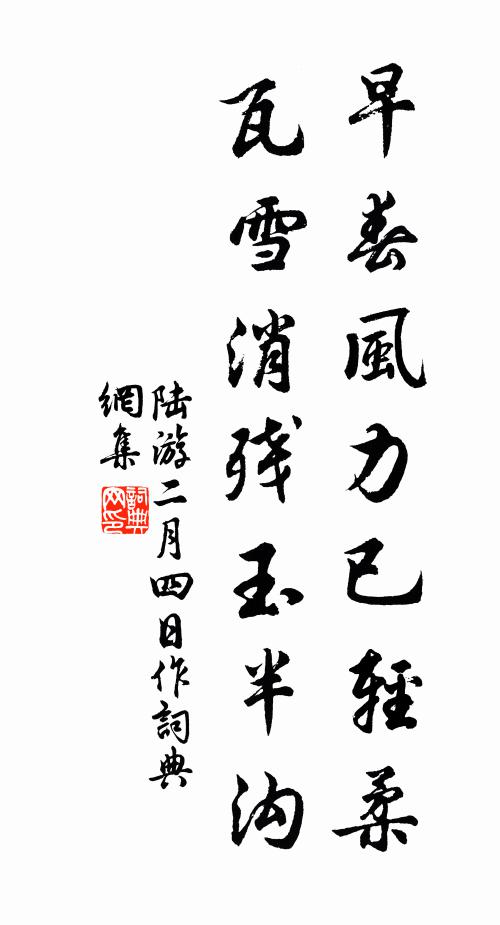 早春風力已輕柔
瓦雪消残玉半沟
陆游二月四日作詞典
網集
詞典
网印